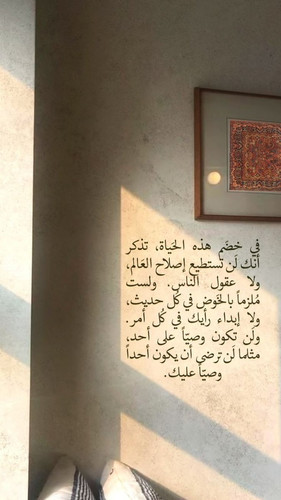 في خضَم هذه الحَياة، تذكر
أنك لَن تستطيع إصلاح العَالم،
ولا عقول الناس. ولست
مُلزماً بالخَوض في كُل حديث،
ولا إبداء رأيك في كُل أمر.
ولَن تكون وصيّاً على أحد،
مثلما لَن ترضى أن يكون أحداً
وصيّاً عليك.